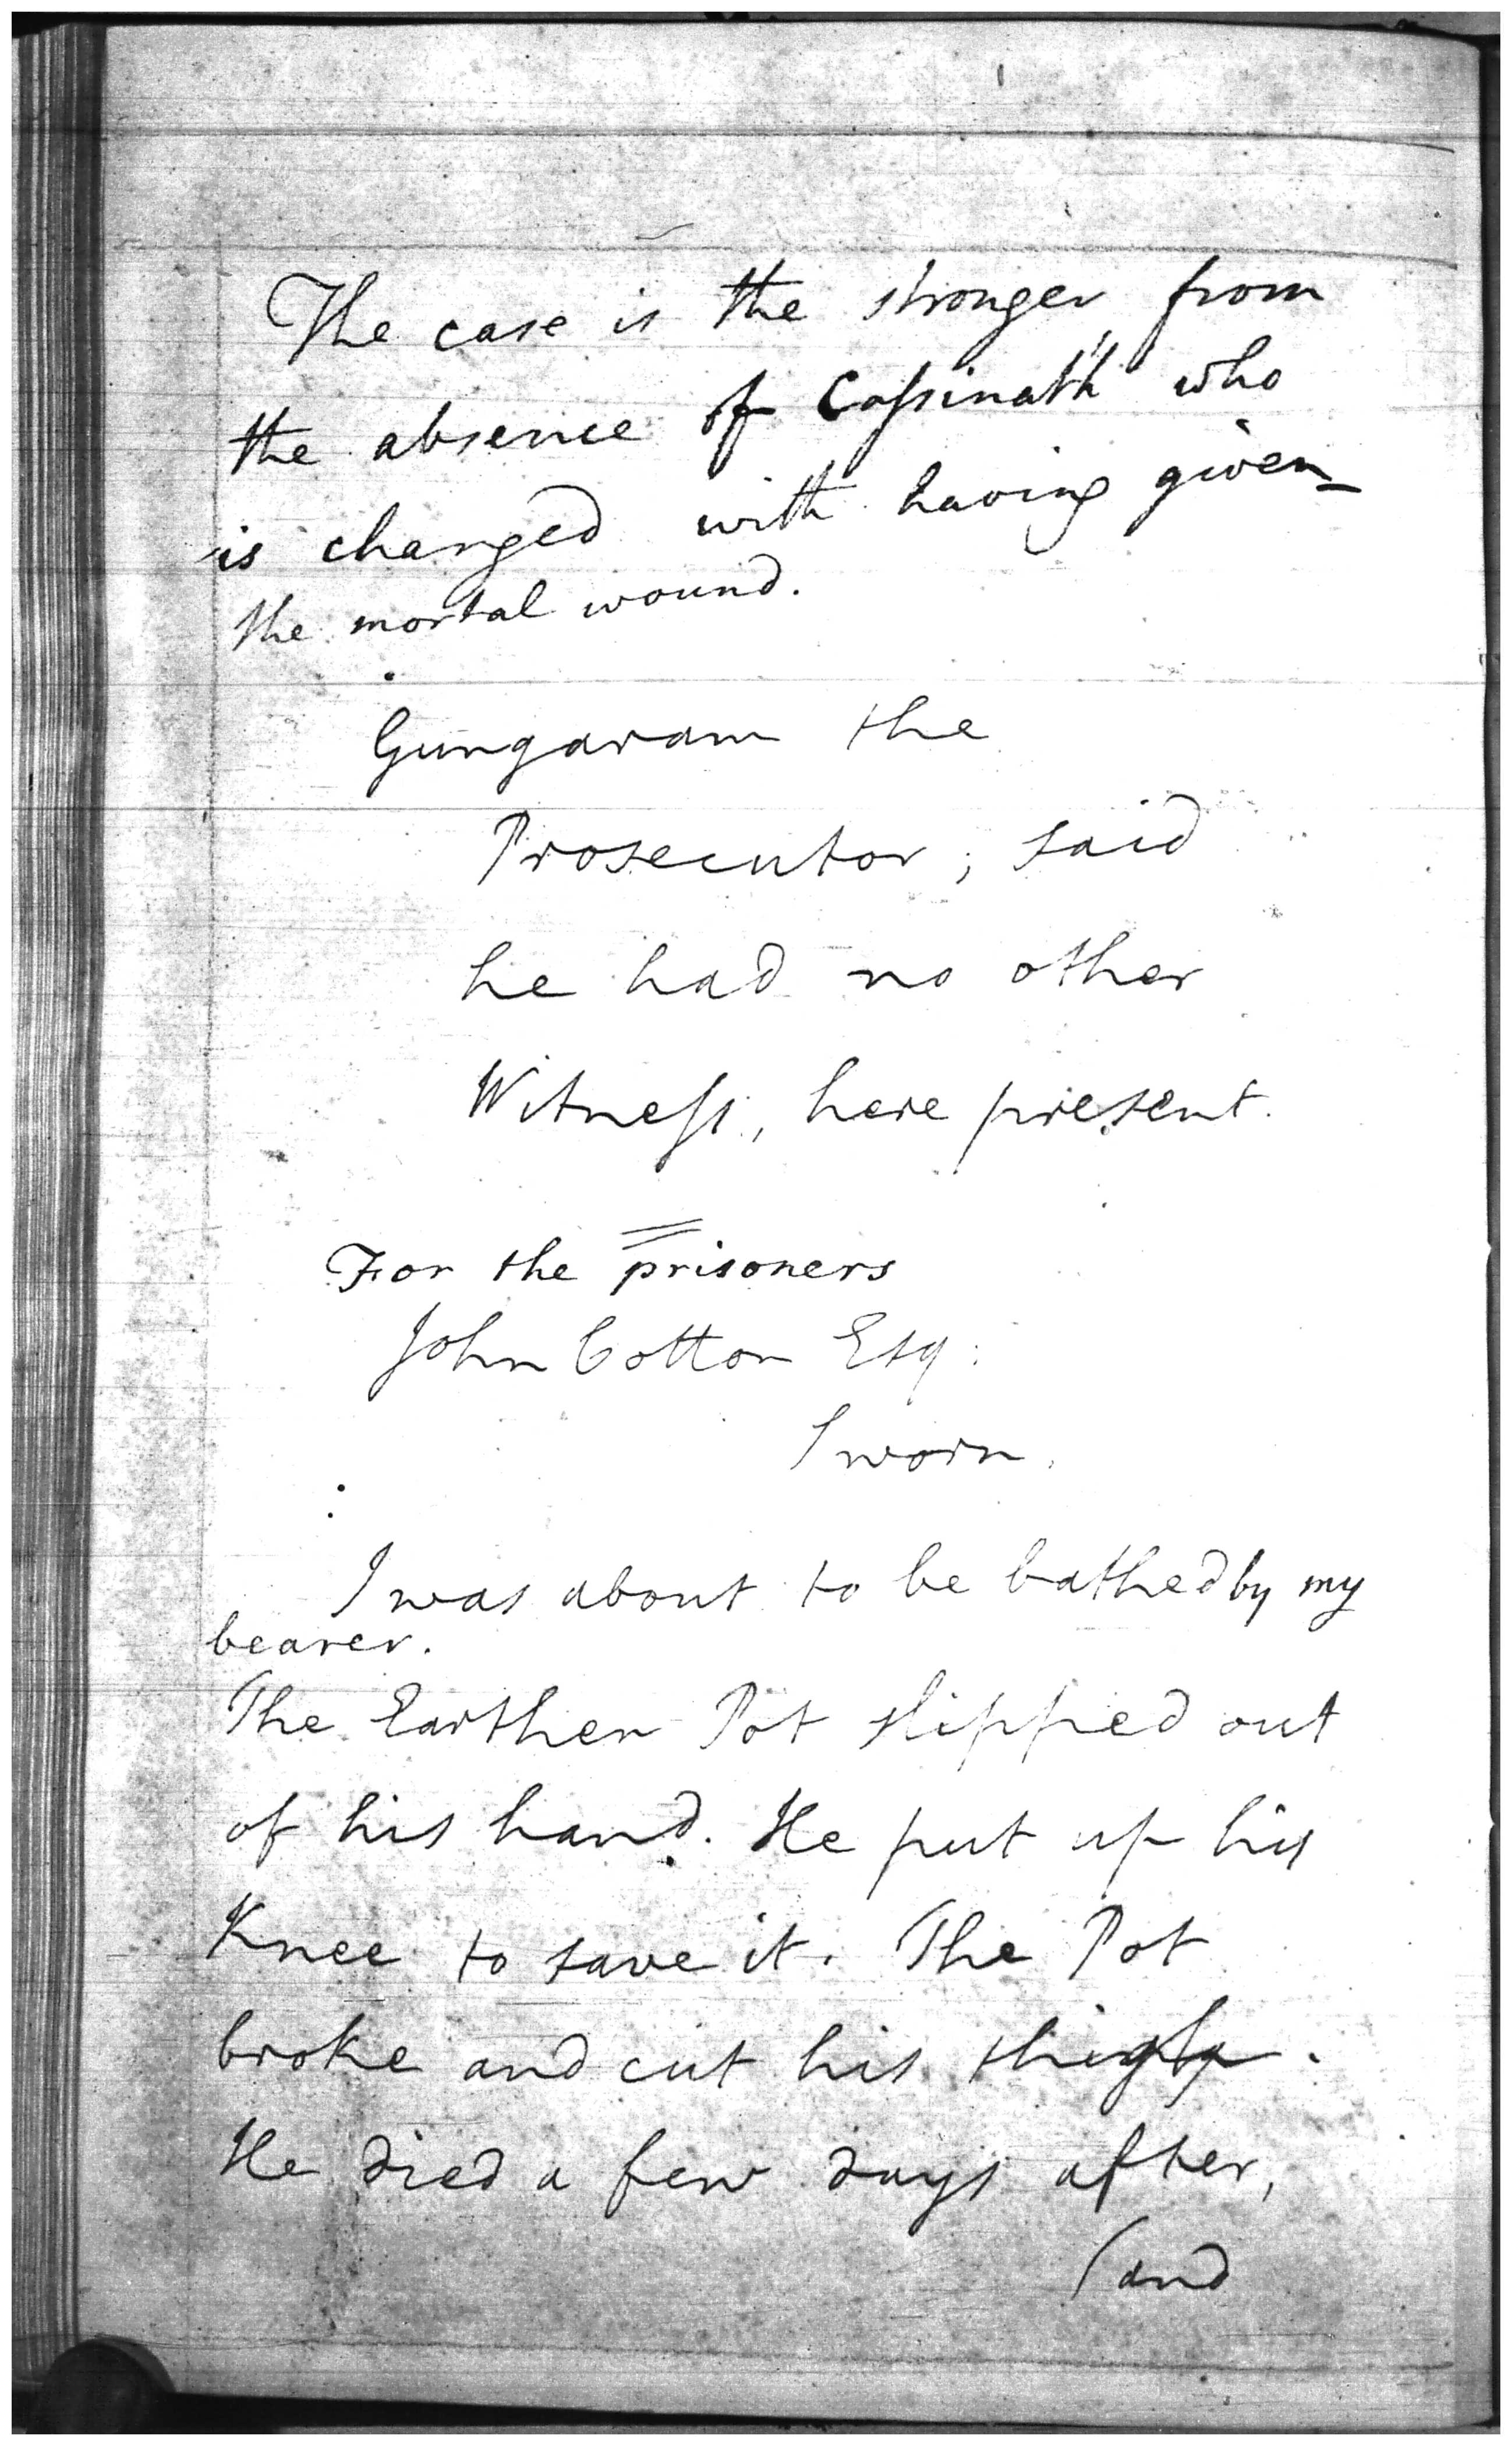 The case is the stronger from
the absence of Cassinath who
is charged with having given
the mortal wound.
Gungaram the
Prosecutor; said
he had no other
Witness, here present.
For the prisoners
John Cotton Esq:
Sworn.
I was about to be bathed by my
bearer.
The Earthen Pot slipped out
of his hand. He put up his
Knee to save it. The Pot
broke and cut his thigh.
He died a few days after,
(and